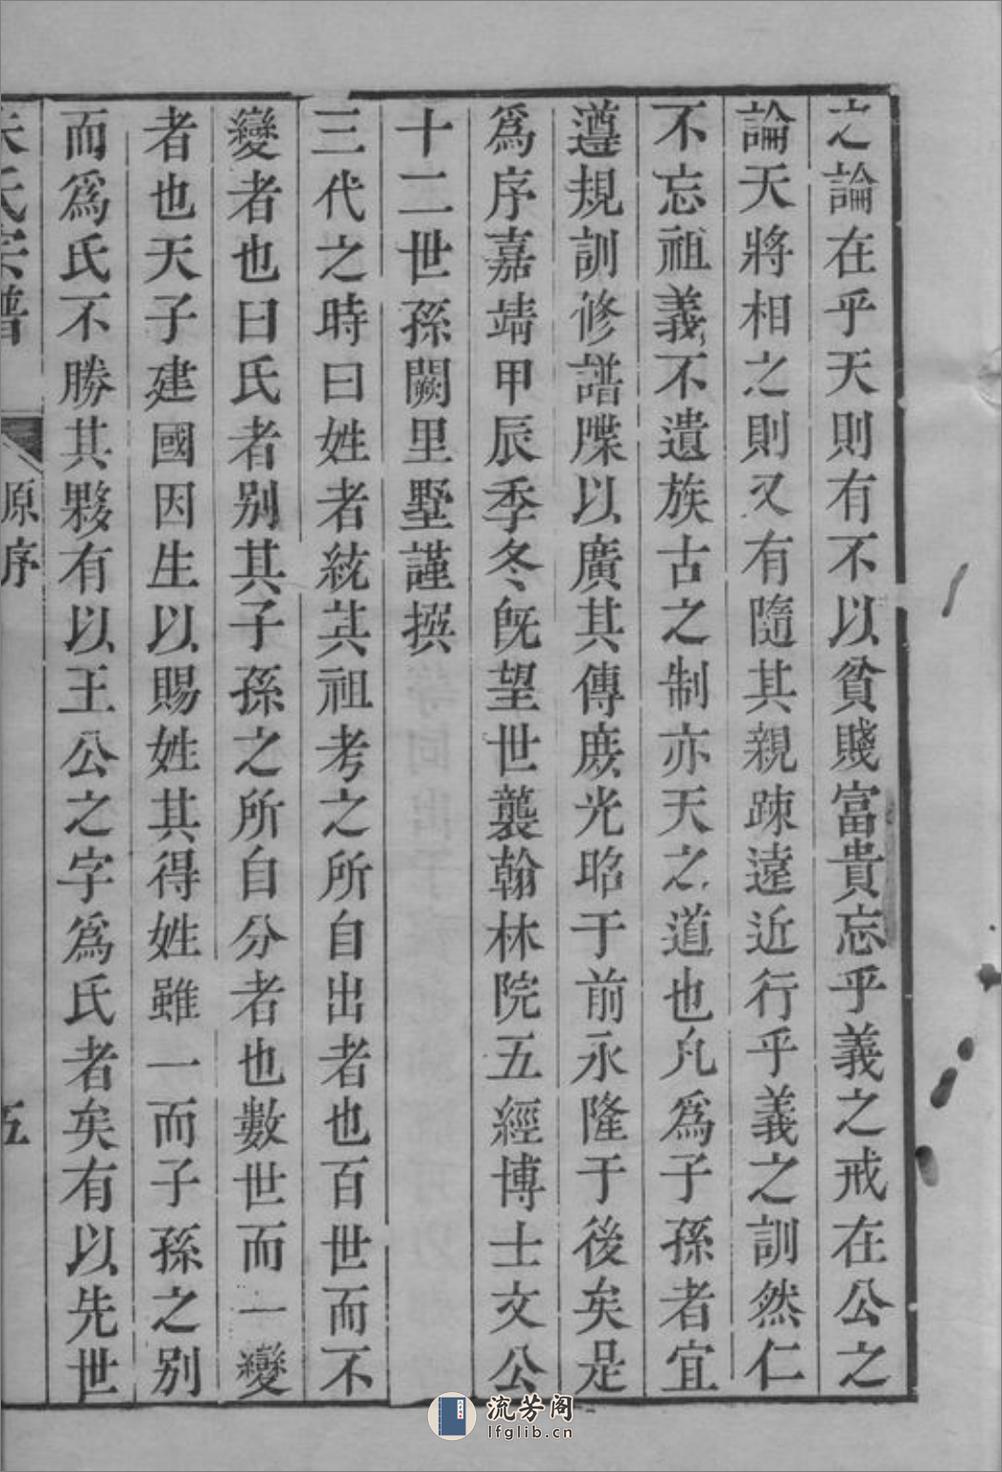 之論在乎天則有不以貧賤富貴忘乎義之戒在公之
論天將相之則又有隨其親疎遠近行乎義之訓然仁
不忘祖義不遺族古之制亦天之道也凡為子孫者宜
遵規訓修譜牒以廣其傳庶光昭于前永隆于後矣是
爲序嘉靖甲辰季冬旣望世襲翰林院五經博士文公
十二世孫闕里墅謹撰
三代之時曰姓者統其祖考之所自出者也百世而不
變者也曰氏者别其子孫之所自分者也數世而一變
者也天子建國因生以賜姓其得姓雖一而子孫之别
而爲氏不勝其夥有以王公之字爲氏者矣有以先世
朱氏宗譜
原序
五
流芳阁
lfglib.cn